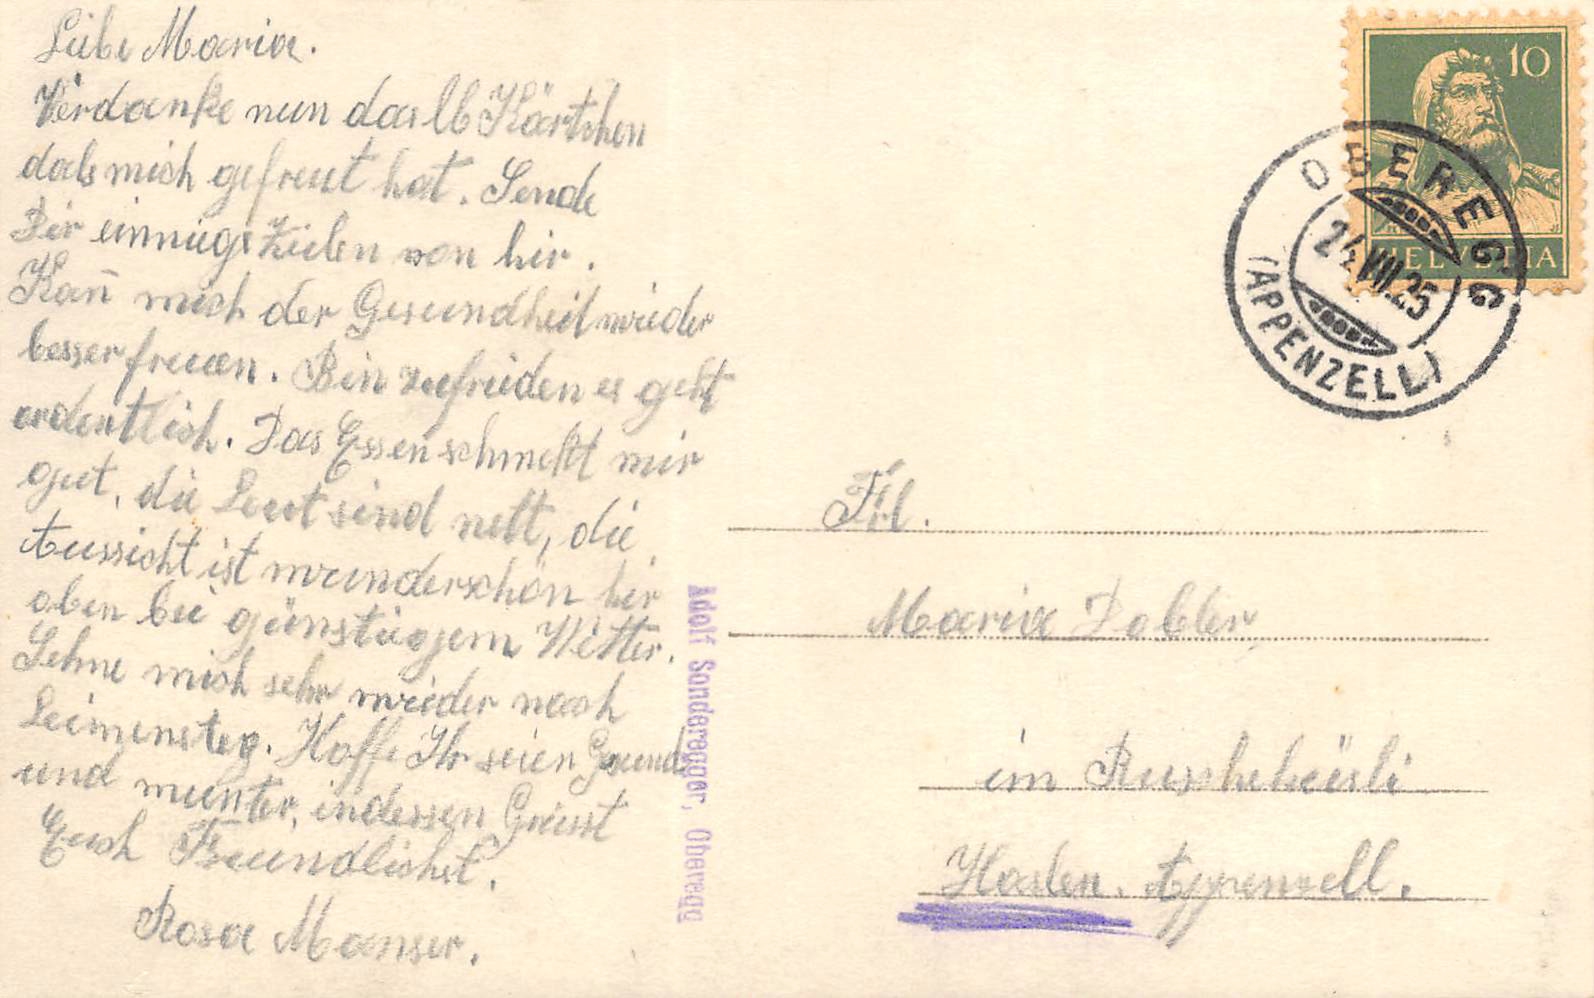 Liebe Maria.
Verdanke nun das lb Kärtchen
dals mich gefreut hat. Sende
Dir einnige Zeilen von hir.
Kan̄ mich der Gesundheit wieder
besser freuen. Bin zufrieden es geht
ordentlich. Das Essen schmekt mir
gut, die Leut sind nett, die
Aussicht ist wunderschön hir
oben bei günstigem Wetter.
Sehne mich sehr wieder nach
Leimensteg. Hoffe Ihr seien Gesund
und munter, indessen Grüsst
Euch Freundlichst.
Rosa Manser.
Adolf Sonderegger, Oberegg
10
HELVETIA
OBEREGG
24.VIII.25
(APPENZELL)
Frl.
Maria Dobler
im
Haslen. Appenzell.